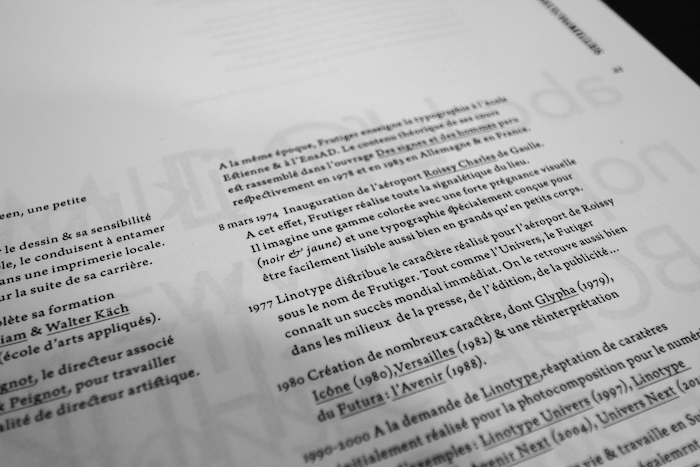 een, une petite
le dessin & sa sensibilité
le, le conduisent à entamer
ans une imprimerie locale.
ur la suite de sa carrière.
plète sa formation
iam & Walter Käch
(école d'arts appliqués).
ignot, le directeur associé
& Peignot, pour travailler
alité de directeur artistique.
A la même époque, Frutiger enseigne la typographie à l'école
Estienne & à l'EnsAD. Le contenu théorique de ses cours
est rassemblé dans l'ouvrage Des signes et des hommes paru
respectivement en 1978 et en 1983 en Allemagne & en France.
8 mars 1974 Inauguration de l'aéroport Roissy Charles de Gaulle.
A cet effet, Frutiger réalise toute la signalétique du lieu.
Il imagine une gamme colorée avec une forte prégnance visuelle
(noir & jaune) et une typographie spécialement conçue pour
être facilement lisible aussi bien en grands qu'en petits corps.
1977 Linotype distribue le caractère réalisé pour l'aéroport de Roissy
sous le nom de Frutiger. Tout comme l'Univers, le Futiger
connaît un succès mondial immédiat. On le retrouve aussi bien
dans les milieux de la presse, de l'édition, de la publicité...
1980 Création de nombreux caractère, dont Glypha (1979),
Icône (1980),Versailles (1982) & une réinterprétation
du Futura : l'Avenir (1988).
1990-2000 A la demande de Linotype,réaptation de caratères
initialement réalisé pour la photocomposition pour le numér
exemples : Linotype Univers (1997), Linotype
Avenir Next (2004), Univers Next (20
& travaille en Su